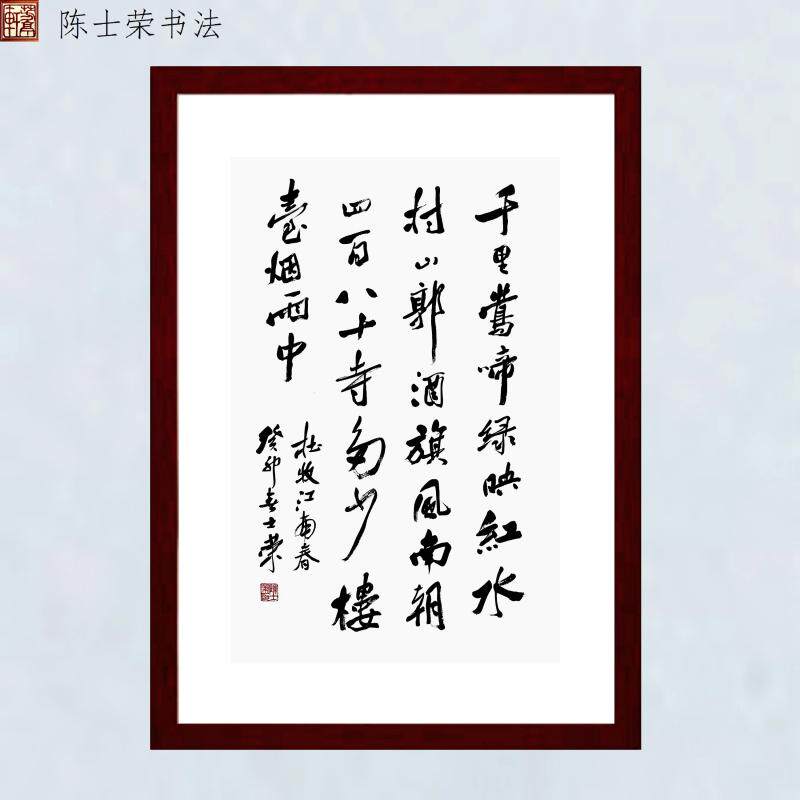 陈士荣书法
千里莺啼绿映红水
村山郭酒旗风南朝
四百八十寺多少楼
臺烟雨中
杜牧江南春
癸卯春士荣